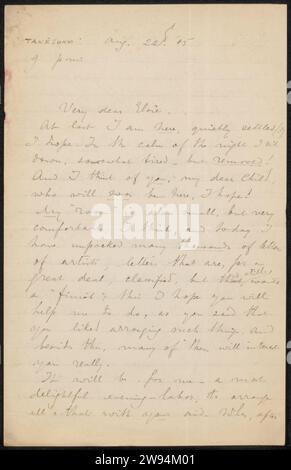 TANESUND: Aug. 22d 85
9 p.m.
Very dear Eloise.
At last I am here, quietly settled,
I hope. In the calm of the night I sit
down, somewhat tired, but removed!
And I think of you, my dear child,
who will soon be here, I hope!
My "room" is also small, but very
comfortable, I think, and to-day I
have unpacked many thousands of letters
of artists, letters that are, for a
great deal, classified, but that wants a
"finish"; this I hope you will
help me to do, as you said that
you liked arranging such things, and
besides this, many of them will interest
you really.
It will be for me a most
delightful evening-labor, to arrange
all that with you and Nils, after
alamy
Image ID: 2W94M01
www.alamy.com